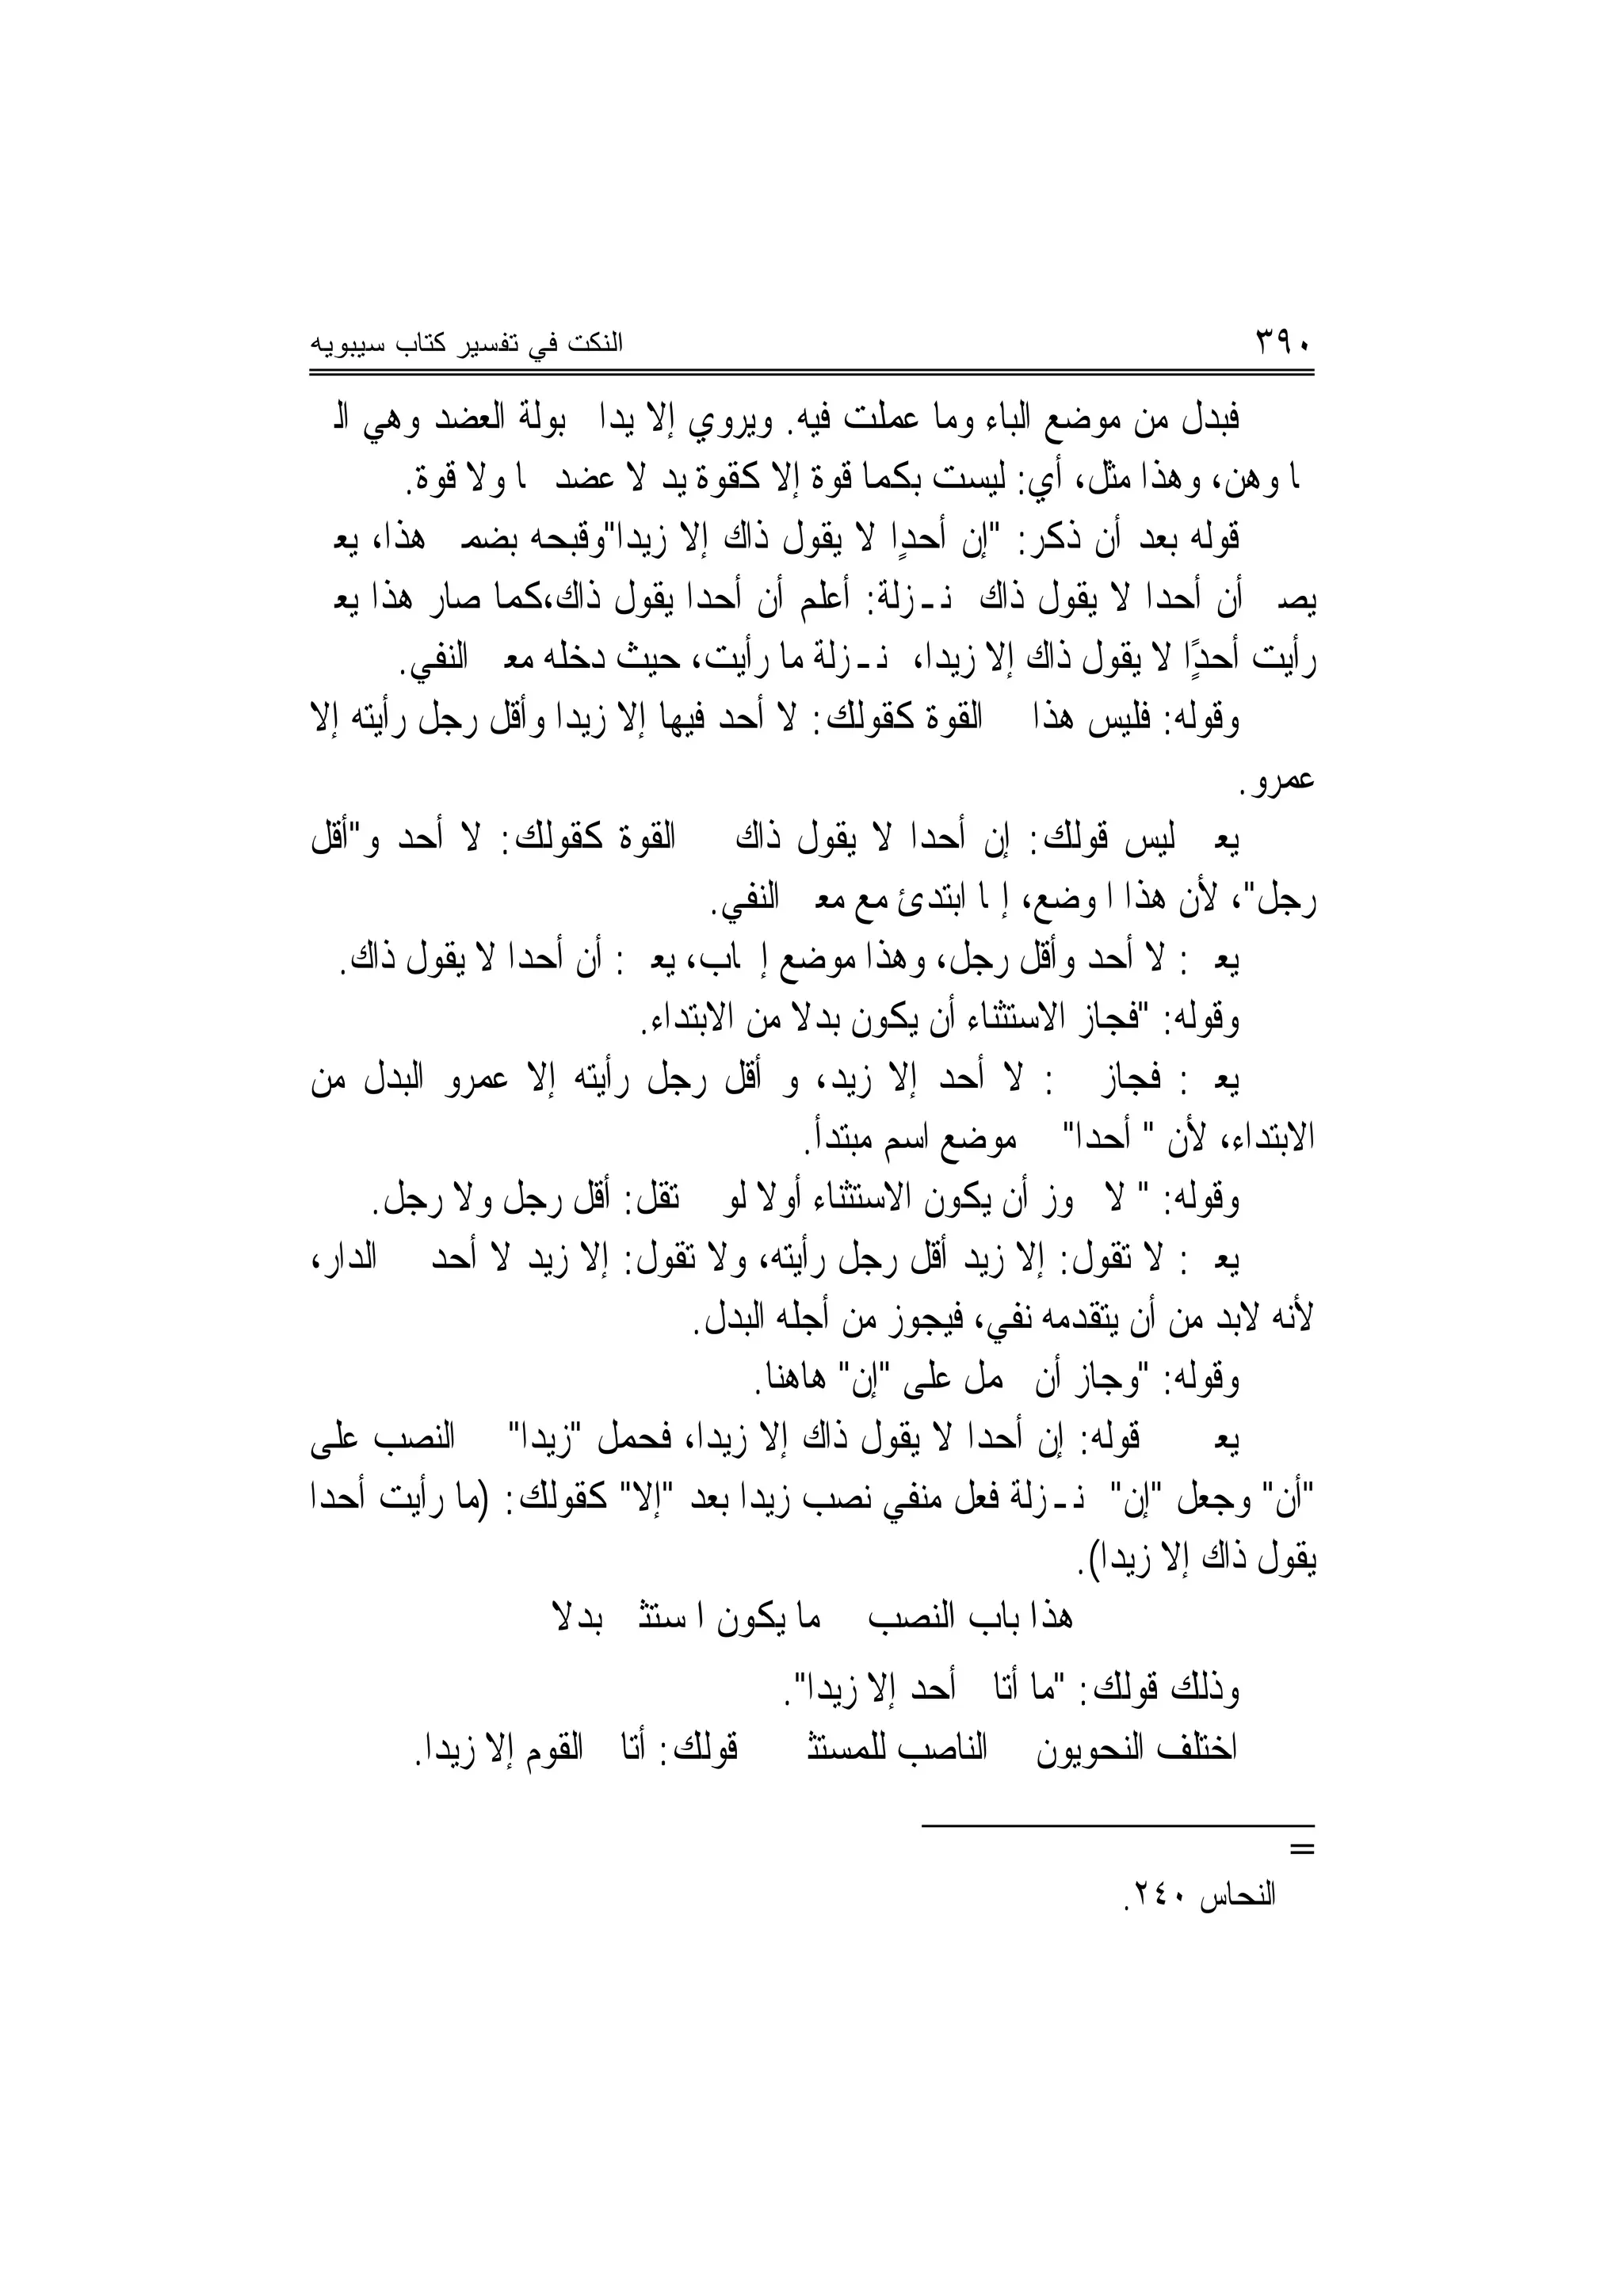 ٣٩٠ النكت في تفسير كتاب سيبويه
فبدل من موضع الباء وما عملت فيه. ويروي إلا يدا بولة العضد وهي الـ
ـا وهن، وهذا مثل، أي: ليست بكما قوة إلا كقوة يد لا عضد ـا ولا قوة.
قوله بعد أن ذكر: "إن أحدٍا لا يقول ذاك إلا زيدا"وقبحه بضمـ هذا، يعـ
يصـ أن أحدا لا يقول ذاك نـزلة: أعلم أن أحدا يقول ذاك،كما صار هذا يعـ
رأيت أحدٍا لا يقول ذاك إلا زيدا، نـزلة ما رأيت، حيث دخله معـ النفي.
وقوله: فليس هذا القوة كقولك: لا أحد فيها إلا زيدا وأقل رجل رأيته إلا
عمرو.
يعـ ليس قولك: إن أحدا لا يقول ذاك القوة كقولك: لا أحد و"أقل
رجل"، لأن هذا ا وضع، إ ـا ابتدئ مع معـ النفي.
يعـ : لا أحد وأقل رجل، وهذا موضع إ ـاب، يعـ : أن أحدا لا يقول ذاك.
وقوله: "فجاز الاستثناء أن يكون بدلا من الابتداء.
يعـ : فجاز : لا أحد إلا زيد، و أقل رجل رأيته إلا عمرو البدل من
الابتداء، لأن " أحدا" موضع اسم مبتدأ.
وقوله: " لا وز أن يكون الاستثناء أولا لو تقل: أقل رجل ولا رجل.
يعـ : لا تقول: إلا زيد أقل رجل رأيته، ولا تقول: إلا زيد لا أحد الدار،
لأنه لابد من أن يتقدمه نفي، فيجوز من أجله البدل.
وقوله: "وجاز أن مل على "إن" هاهنا.
يعـ قوله: إن أحدا لا يقول ذاك إلا زيدا، فحمل "زيدا" النصب على
"أن" وجعل "إن" نـزلة فعل منفي نصب زيدا بعد "إلا" كقولك: (ما رأيت أحدا
يقول ذاك إلا زيدا).
هذا باب النصب ما يكون ا ستثـ بدلا
وذلك قولك: "ما أتا أحد إلا زيدا".
اختلف النحويون الناصب للمستثـ قولك: أتا القوم إلا زيدا.
=
النحاس ٢٤٠.